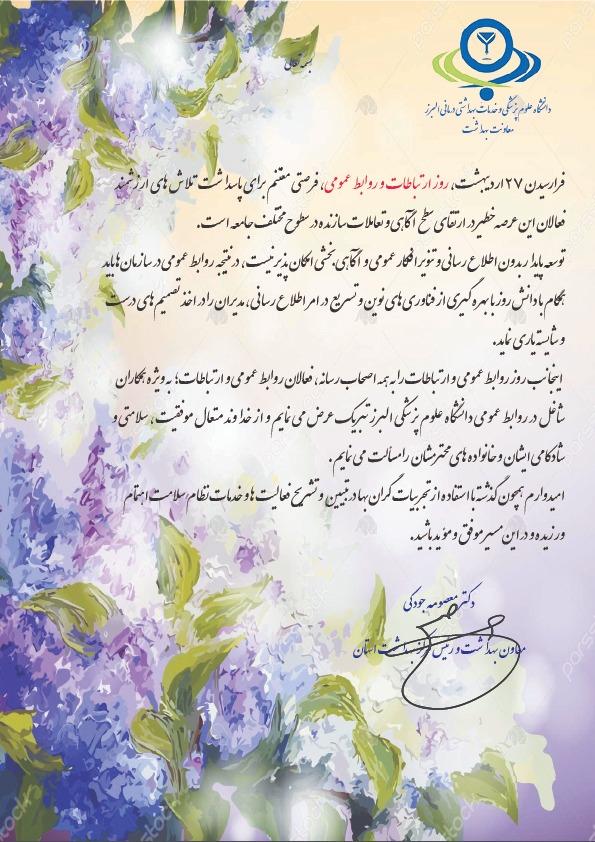 بسمه تعالی
دانشگاه علوم پزشکی و خدمات بهداشتی درمانی البرز
معاونت بهداشت
فرارسیدن ۲۷ اردیبهشت، روز ارتباطات و روابط عمومی، فرصتی مغتنم برای پاسداشت تلاش های ارزشمند
فعالان این عرصه خطیر در ارتقای سطح آگاهی و تعاملات سازنده در سطوح مختلف جامعه است.
توسعه پایدار بدون اطلاع رسانی و تنویر افکار عمومی و آگاهی بخشی امکان پذیر نیست، در نتیجه روابط عمومی در سازمان ها باید
همگام با دانش روز با بهره گیری از فناوری های نوین و تسریع در امر اطلاع رسانی، مدیران را در اخذ تصمیم های درست
و شایسته یاری نماید.
اینجانب روز روابط عمومی و ارتباطات را به همه اصحاب رسانه، فعالان روابط عمومی و ارتباطات؛ به ویژه همکاران
شاغل در روابط عمومی دانشگاه علوم پزشکی البرز تبریک عرض می نمایم و از خداوند متعال موفقیت، سلامتی و
شادکامی ایشان و خانواده های محترمشان را مسألت می نمایم.
امیدوارم همچون گذشته با استفاده از تجربیات گران بها در تبیین و تشریح فعالیت ها و خدمات نظام سلامت اهتمام
ورزیده و در این مسیر موفق و مؤید باشید.
دکتر معصومه جودکی
معاون بهداشت و رئیس مرکز بهداشت استان